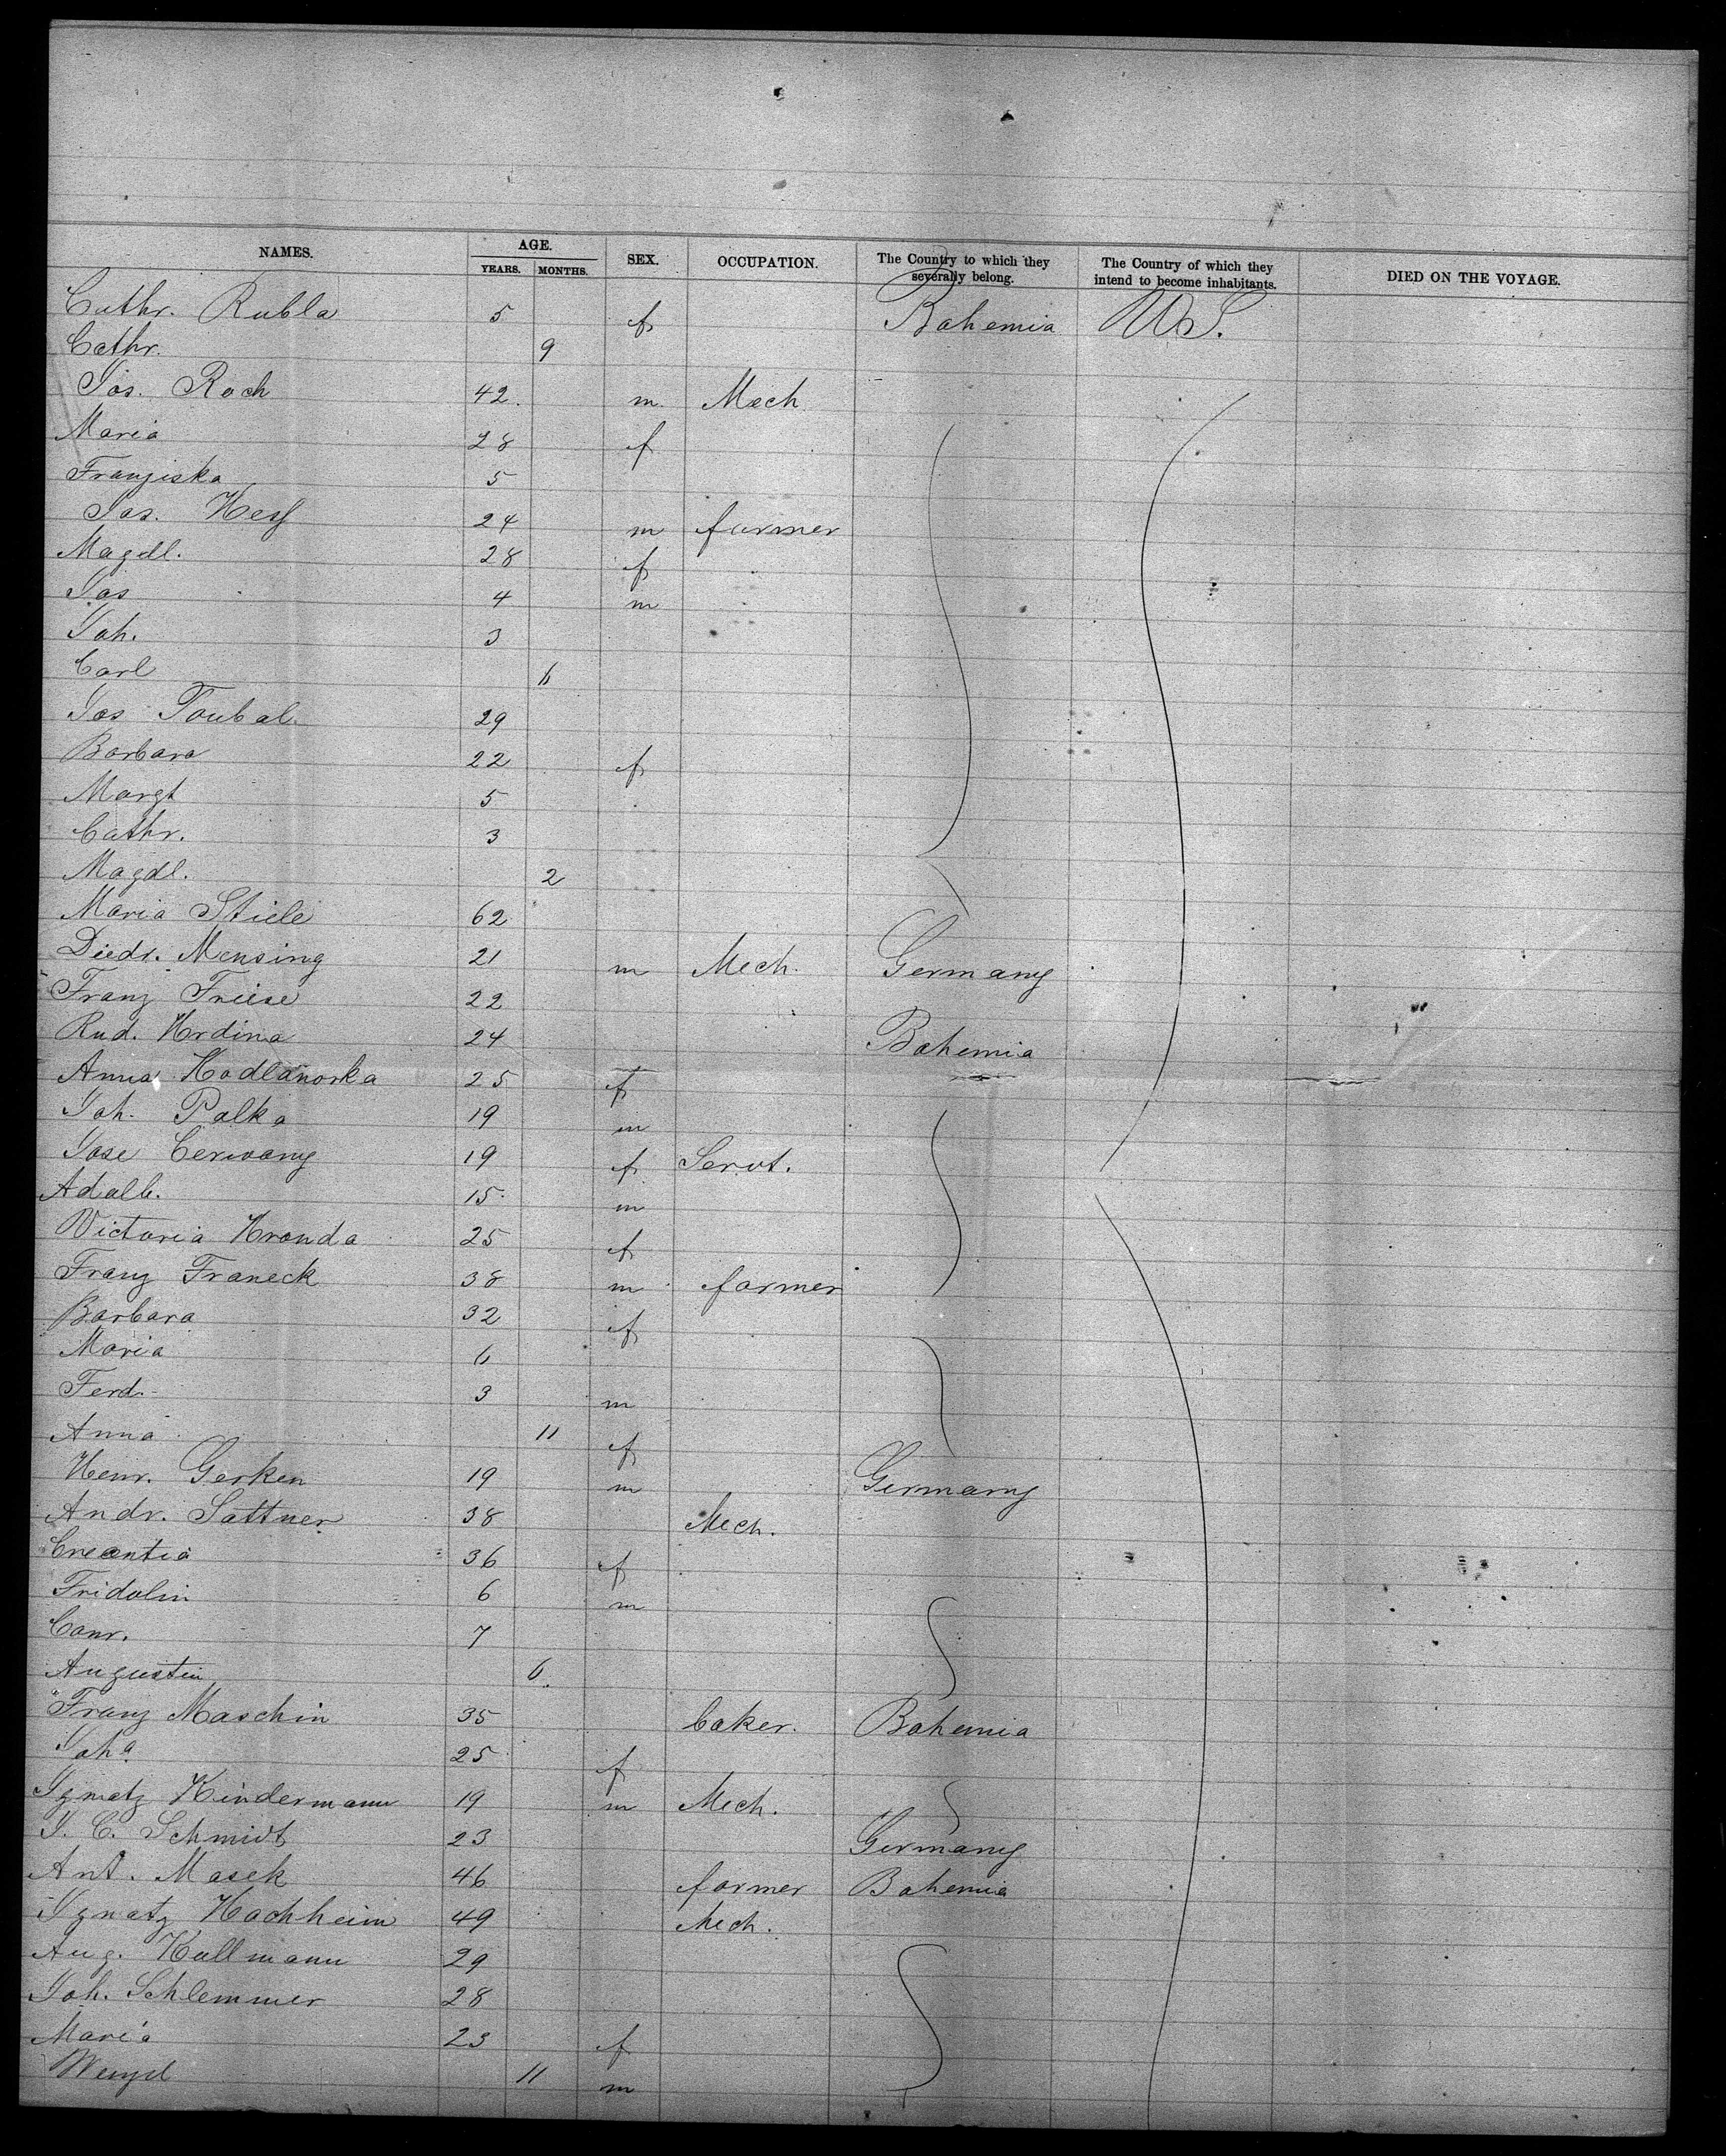 NAMES. AGE. SEX. OCCUPATION. The Country to which they severally belong. The Country of which they intend to become inhabitants. DIED ON THE VOYAGE.
YEARS. MONTHS.
Cathr. Rubla 5 f Bohemia U.S.
Cathr. 9
Jos. Roch 42 m Mech
Maria 28 f
Franziska 5
Jos. Hess 24 m farmer
Magdl. 28 f
Jos 4 m
Joh. 3
Carl 6
Jos Toubal 29
Barbara 22 f
Margt 5
Cathr. 3
Magdl. 2
Maria Stiele 62
Diedr. Mensing 21 m Mech. Germany
Franz Friese 22
Rud. Hrdina 24 Bohemia
Anna Hodlanoska 25 f
Joh. Palka 19 m
Jose Cerwany 19 f Servt.
Adalb. 15 m
Victoria Hronda 25 f
Franz Franeck 38 m farmer
Barbara 32 f
Maria 6
Ferd. 3 m
Anna 11 f
Henr. Gerken 19 m Germany
Andr. Sattner 38 Mech.
Crecentia 36 f
Fridolin 6 m
Conr. 7
Augustin 6
Franz Maschin 35 baker. Bohemia
Joha 25 f
Ignatz Kindermann 19 m Mech.
J. C. Schmidt 23 Germany
Ant. Masek 46 farmer Bohemia
Ignatz Hochheim 49 Mech.
Aug. Kullmann 29
Joh. Schlemmer 28
Maria 23 f
Wenzel 11 m